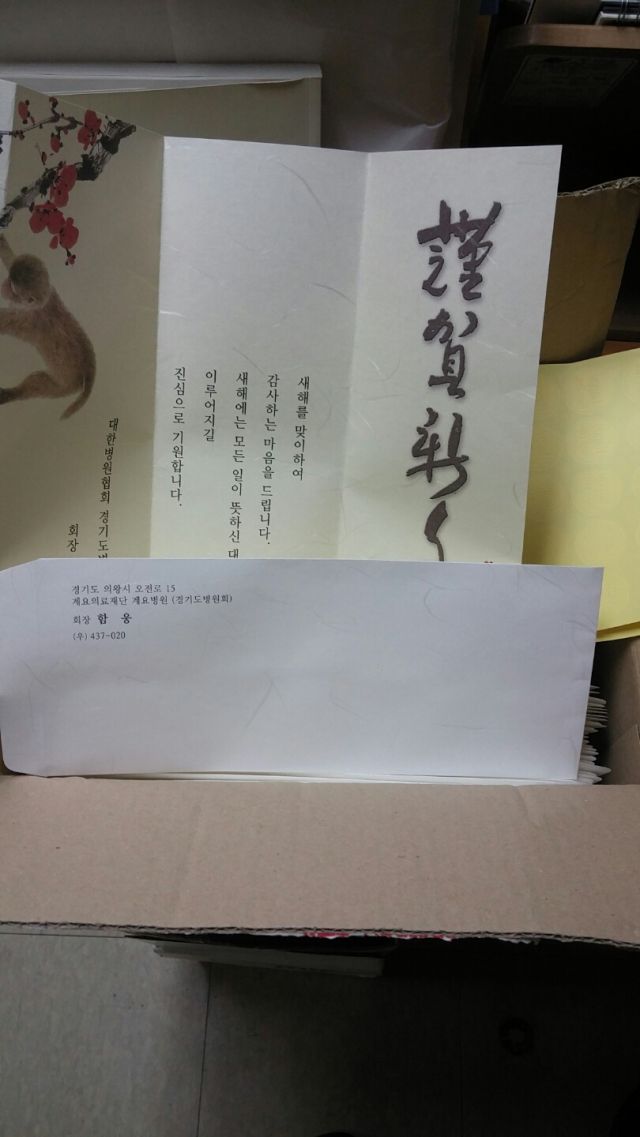 謹賀新
새해를 맞이하여
감사하는 마음을 드립니다.
새해에는 모든 일이 뜻하신 대
이루어지길
진심으로 기원합니다.
대한병원협회 경기도병
회장
경기도 의왕시 오전로 15
계요의료재단 계요병원 (경기도병원회)
회장 함 웅
(우) 437-020